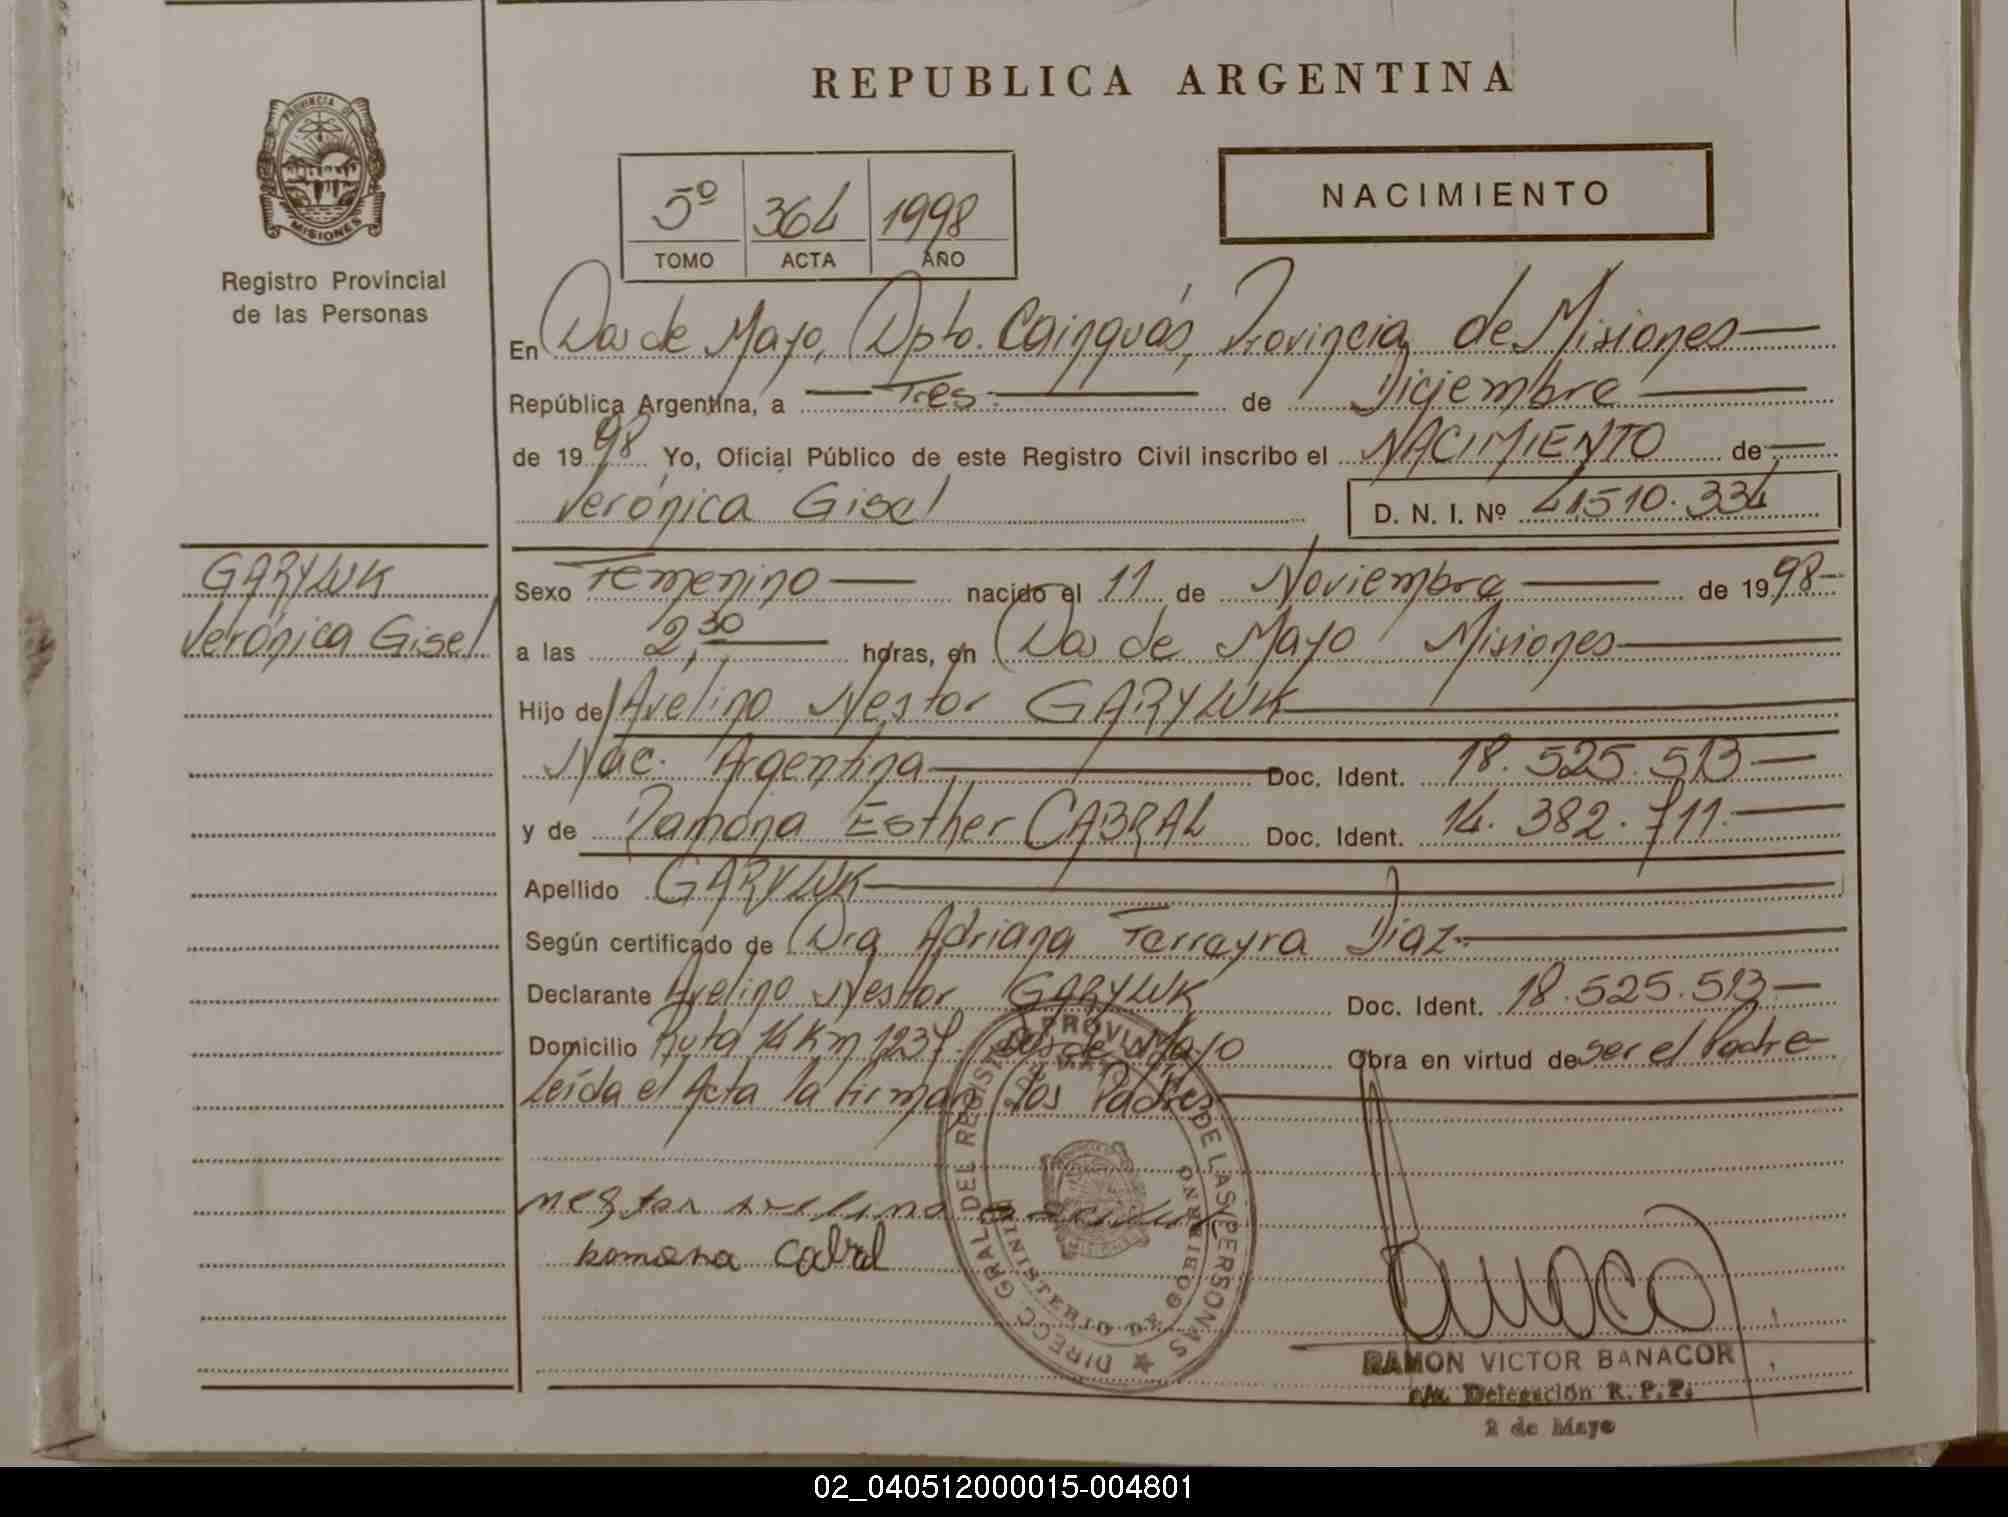 REPUBLICA ARGENTINA
PROVINCIA DE
MISIONES
Registro Provincial
de las Personas
5º 364 1998
TOMO ACTA AÑO
NACIMIENTO
En Dos de Mayo, Dpto. Cainguás, Provincia de Misiones
República Argentina, a Tres de Diciembre
de 1998 Yo, Oficial Público de este Registro Civil inscribo el NACIMIENTO de
Verónica Gisel D. N. I. Nº 41510.334
GARYLUK
Verónica Gisel
Sexo Femenino nacido el 11 de Noviembre de 1998
a las 2,30 horas, en Dos de Mayo Misiones
Hijo de Avelino Nestor GARYLUK
Nac. Argentina Doc. Ident. 18.525.513
y de Ramona Esther CABRAL Doc. Ident. 14.382.711.
Apellido GARYLUK
Según certificado de Dra Adriana Ferreyra Diaz
Declarante Avelino Nestor GARYLUK Doc. Ident. 18.525.513
Domicilio Ruta 14 Km 1237. Dos de Mayo Obra en virtud de ser el Padre
Leída el Acta la firman los Padres
nestor avelino
Ramona Cabral
DIRECC GRAL DEL REGISTRO PROVINCIAL DE LAS PERSONAS
MINISTERIO DE GOBIERNO
MISIONES
RAMON VICTOR BANACOR
Delegación R.P.P.
2 de Mayo
02_040512000015-004801